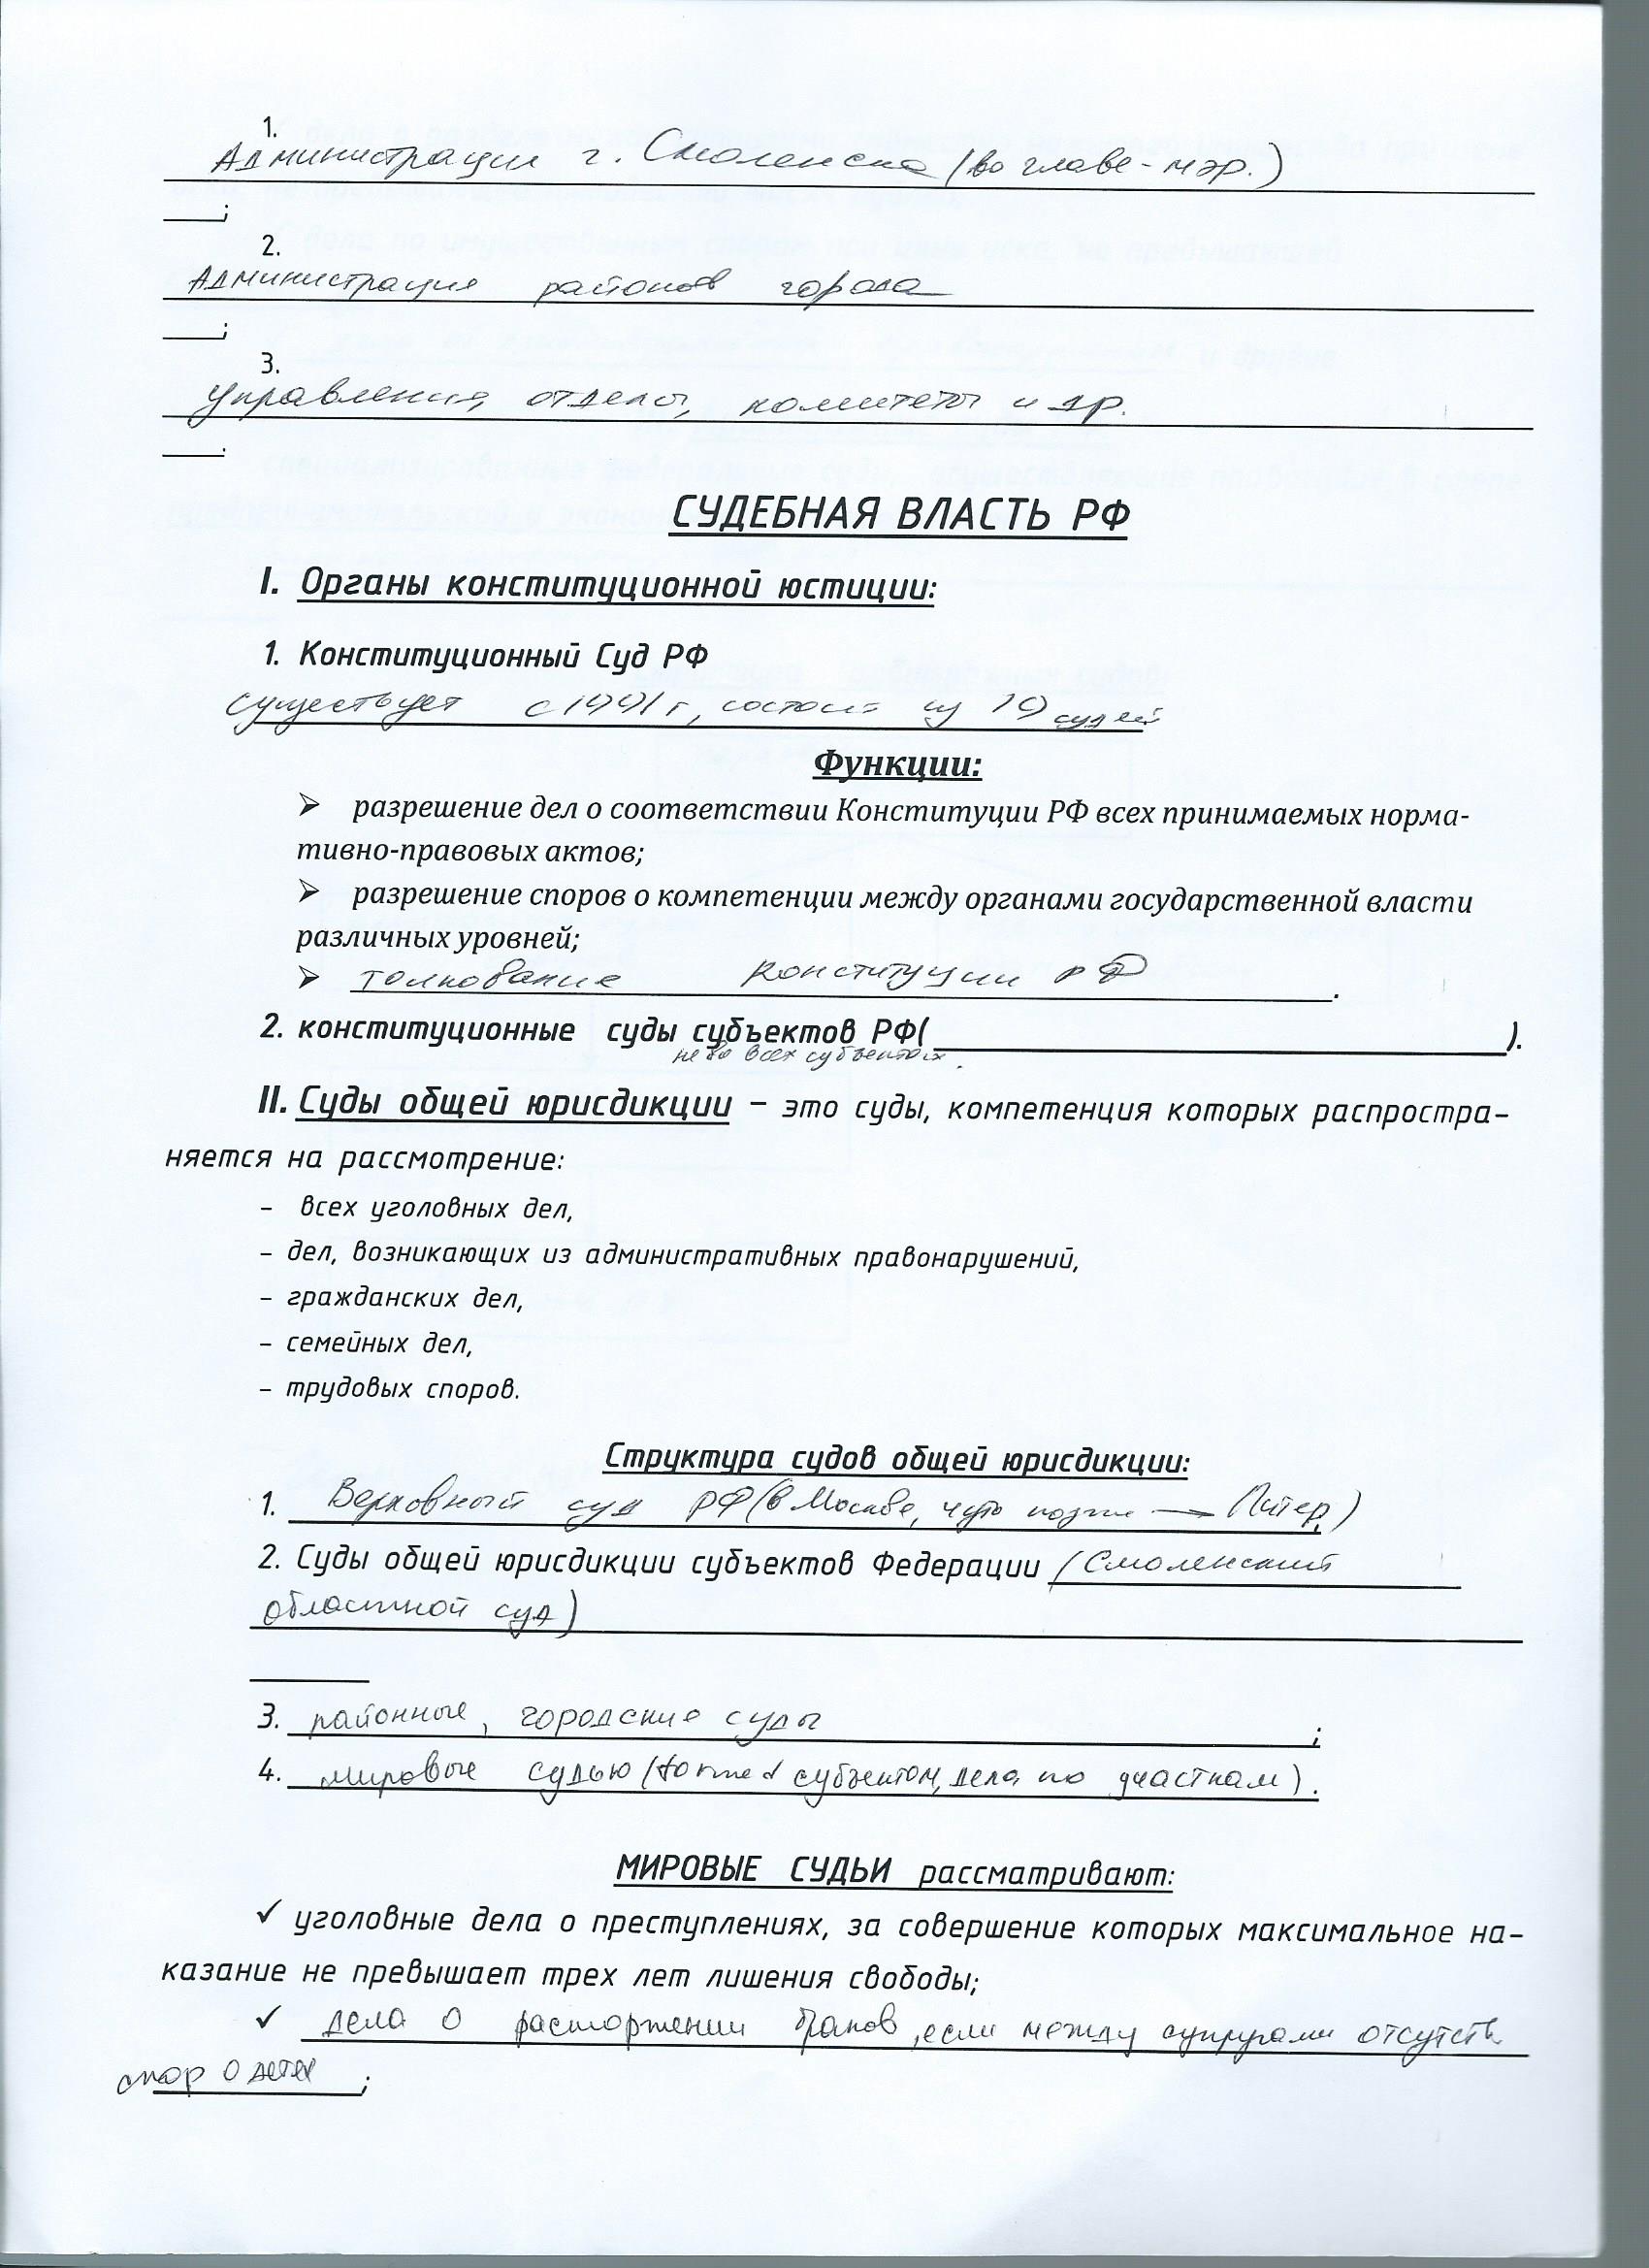 1.
Администрация г. Смоленска (во главе - мэр.)
;
2.
Администрация районов города
;
3.
управления, отделы, комитеты и др.
.
СУДЕБНАЯ ВЛАСТЬ РФ
I. Органы конституционной юстиции:
1. Конституционный Суд РФ
существует с 1991 г, состоит из 19 судей
Функции:
➢ разрешение дел о соответствии Конституции РФ всех принимаемых норма-
тивно-правовых актов;
➢ разрешение споров о компетенции между органами государственной власти
различных уровней;
➢ толкование Конституции РФ.
2. конституционные суды субъектов РФ( ).
не во всех субъектах.
II. Суды общей юрисдикции – это суды, компетенция которых распростра-
няется на рассмотрение:
- всех уголовных дел,
- дел, возникающих из административных правонарушений,
- гражданских дел,
- семейных дел,
- трудовых споров.
Структура судов общей юрисдикции:
1. Верховный суд РФ (в Москве, чуть позже → Питер)
2. Суды общей юрисдикции субъектов Федерации (Смоленский
областной суд)
3. районные, городские суды ;
4. мировые судью (formed субъектом, дела по участкам).
МИРОВЫЕ СУДЬИ рассматривают:
✓ уголовные дела о преступлениях, за совершение которых максимальное на-
казание не превышает трех лет лишения свободы;
✓ дела о расторжении браков, если между супругами отсутств
спор о детях ;